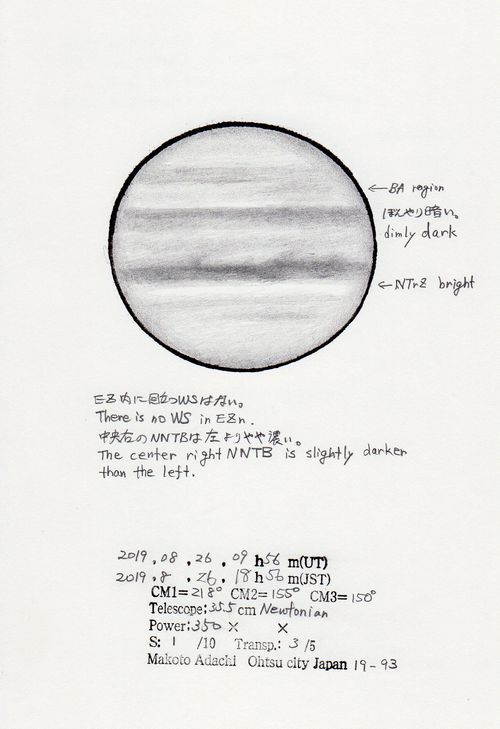 ←BA region
ぼんやり暗い。
dimly dark
←NTrZ bright
EZ内に目立つWSはない。
There is no WS in EZn.
中央右のNNTBは左よりやや濃い。
The center right NNTB is slightly darker
than the left.
2019.08.26.09h56m(UT)
2019.8.26.18h56m(JST)
CM1=218° CM2=155° CM3=150°
Telescope:35.5cm Newtonian
Power:350× ×
S: 1 /10 Transp.: 3 /5
Makoto Adachi Ohtsu city Japan 19-93